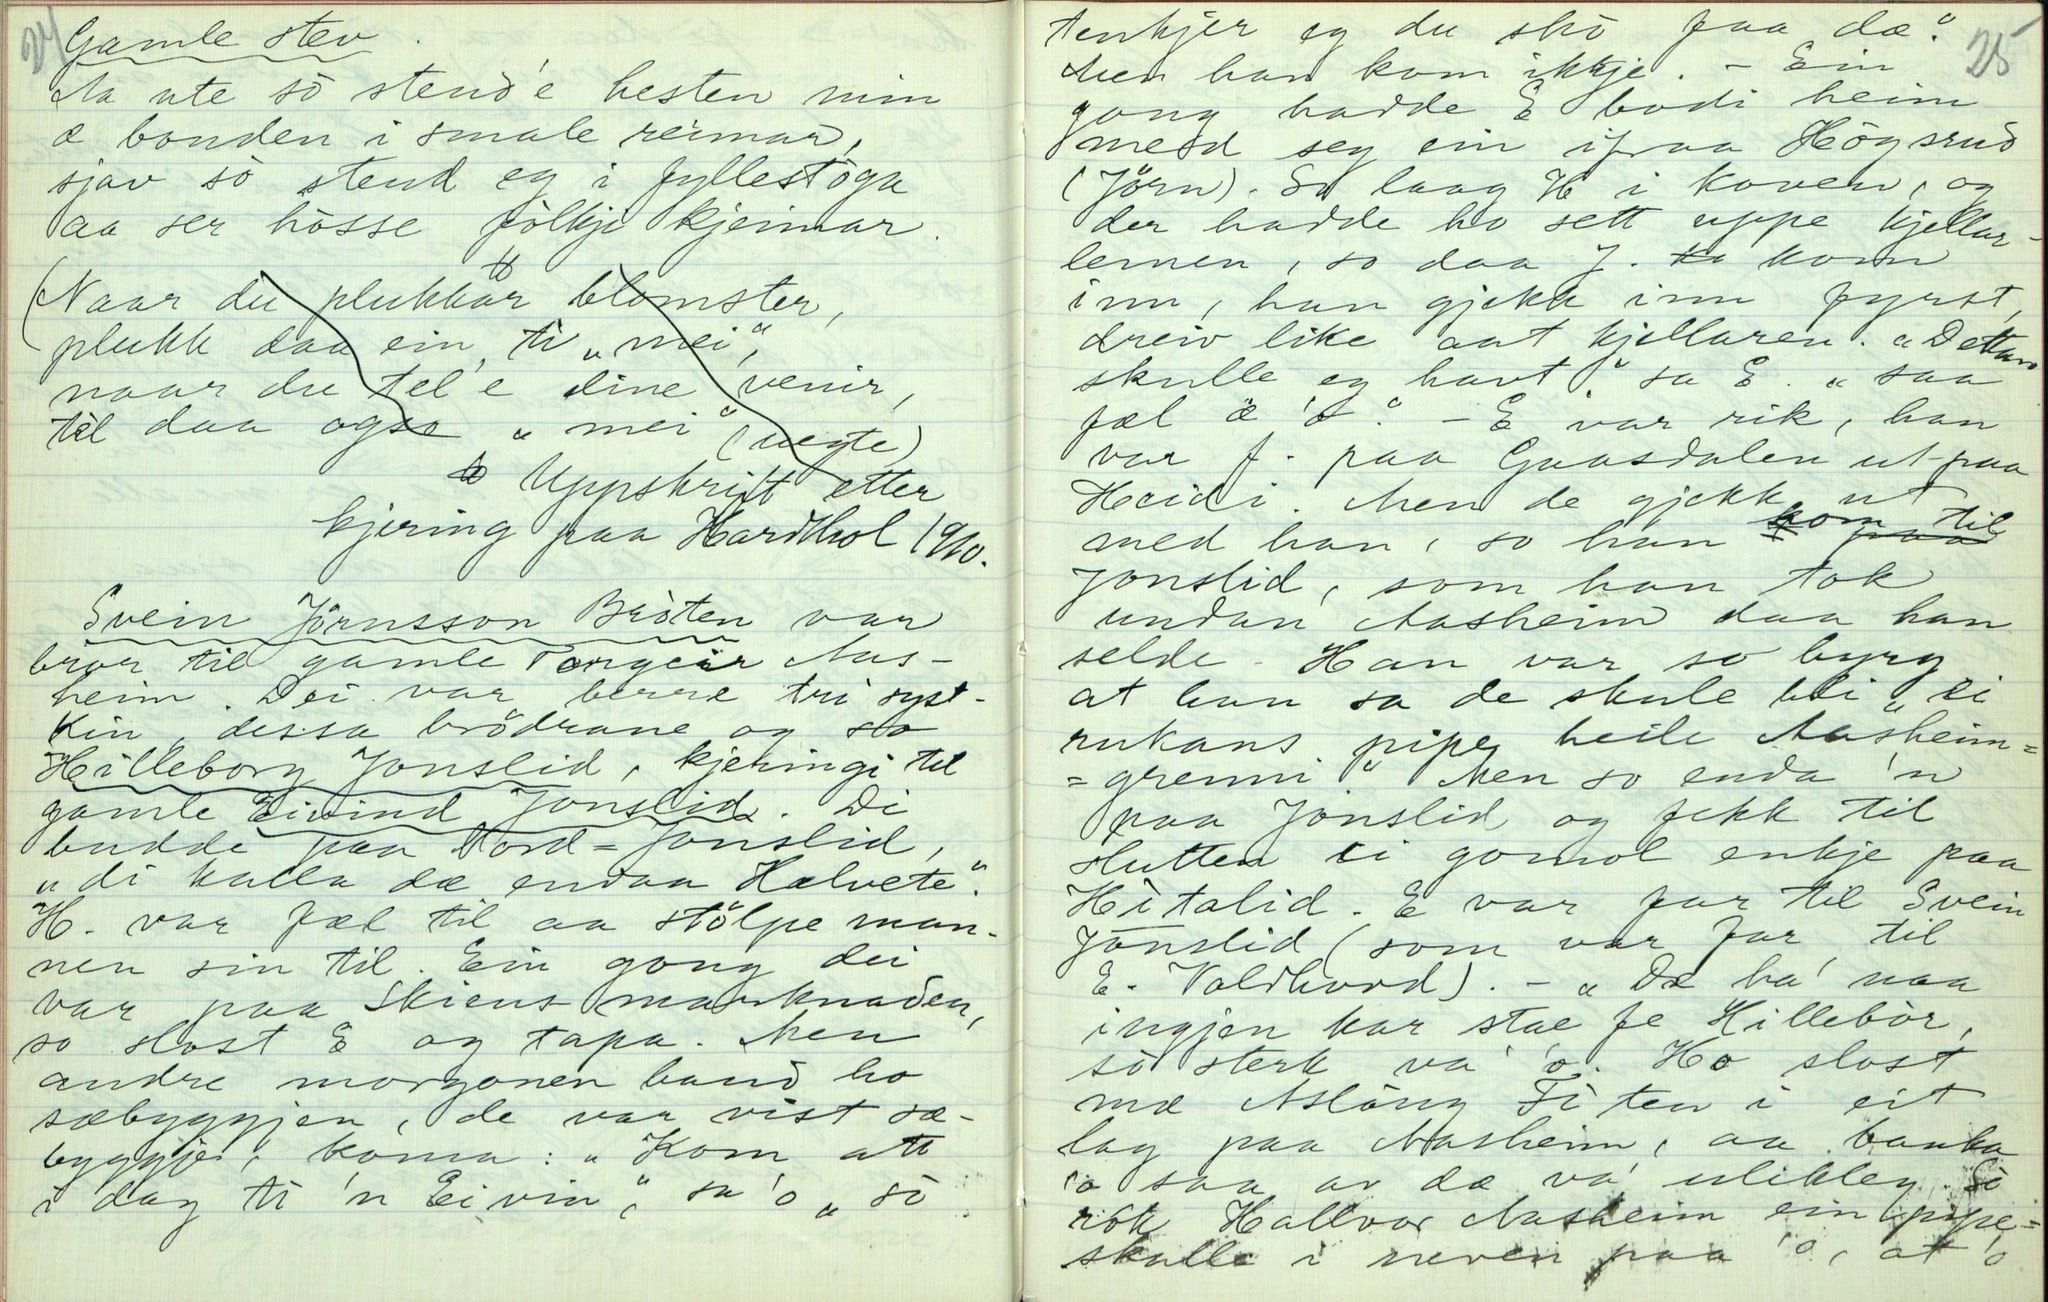 24
Gamle stev.
Aa ute sò stend'e hesten min
æ bonden i smale reimar,
sjøv sò stend eg i fyllestòga
aa ser hòsse fòlkje kjeimar.
(Naar du plukkar blomster,
plukk daa ein ti „mei",
naar du tel'e dine venir,
tel daa ogso „mei" (uegte)
Uppskrift etter
kjering paa Hardhol 1910.
Svein Jörnsson Bròten var
bror til gamle Torgeir Aas-
heim. Dei var berre tri syst-
kin, dessa brödrane og so
Hilleborg Jonslid, kjeringi til
gamle Eivind Jonslid. Di
budde paa Nord-Jonslid,
„di kalla dæ endaa Hælvete".
H. var fæl til aa stölpe man-
nen sin til. Ein gong dei
var paa Skiens-marknaden,
so slost E og tapa. Men
andre morgonen baud ho
sæbyggjen, de var vist sæ-
byggje, koma: „Kom att
i dag ti 'n Eivin", sa 'o „sò
25
tenkjer eg du skò faa dæ".
Men han kom ikkje. - Ein
gong hadde E bodi heim
med seg ein ifraa Högsrud
(Jörn). So laag H i koven, og
der hadde ho sett uppe kjellar-
lemen, so daa J. kom
inn, han gjekk inn fyrst,
dreiv like aat kjellaren. „Dettan
skulle eg havt", sa E. „saa
fæl æ 'o". - E var rik, han
var f. paa Gaasdalen ut paa
Heidi. Men de gjekk ut
med han, so han kom til
Jonslid, som han tok
undan Aasheim daa han
selde. Han var so byrg
at han sa de skule bli „ei
rukans pipe heile Aasheim-
=grenni". Men so enda 'n
paa Jònslid og fekk til
slutten ei gomol enkje paa
Hitalid. E var far til Svein
Jònslid (som var far til
E. Valdhovd). - „Dæ ha' naa
ingjen kar stae fe Hillebòr,
sò sterk va' 'o. Ho slost
mæ Aslaug Fiten i eit
lag paa Aasheim, aa banka
'o saa ar dæ va' ulikleg. Sò
rók Hallvor Aasheim ein pipe=
skalle i neven paa 'o, at 'o